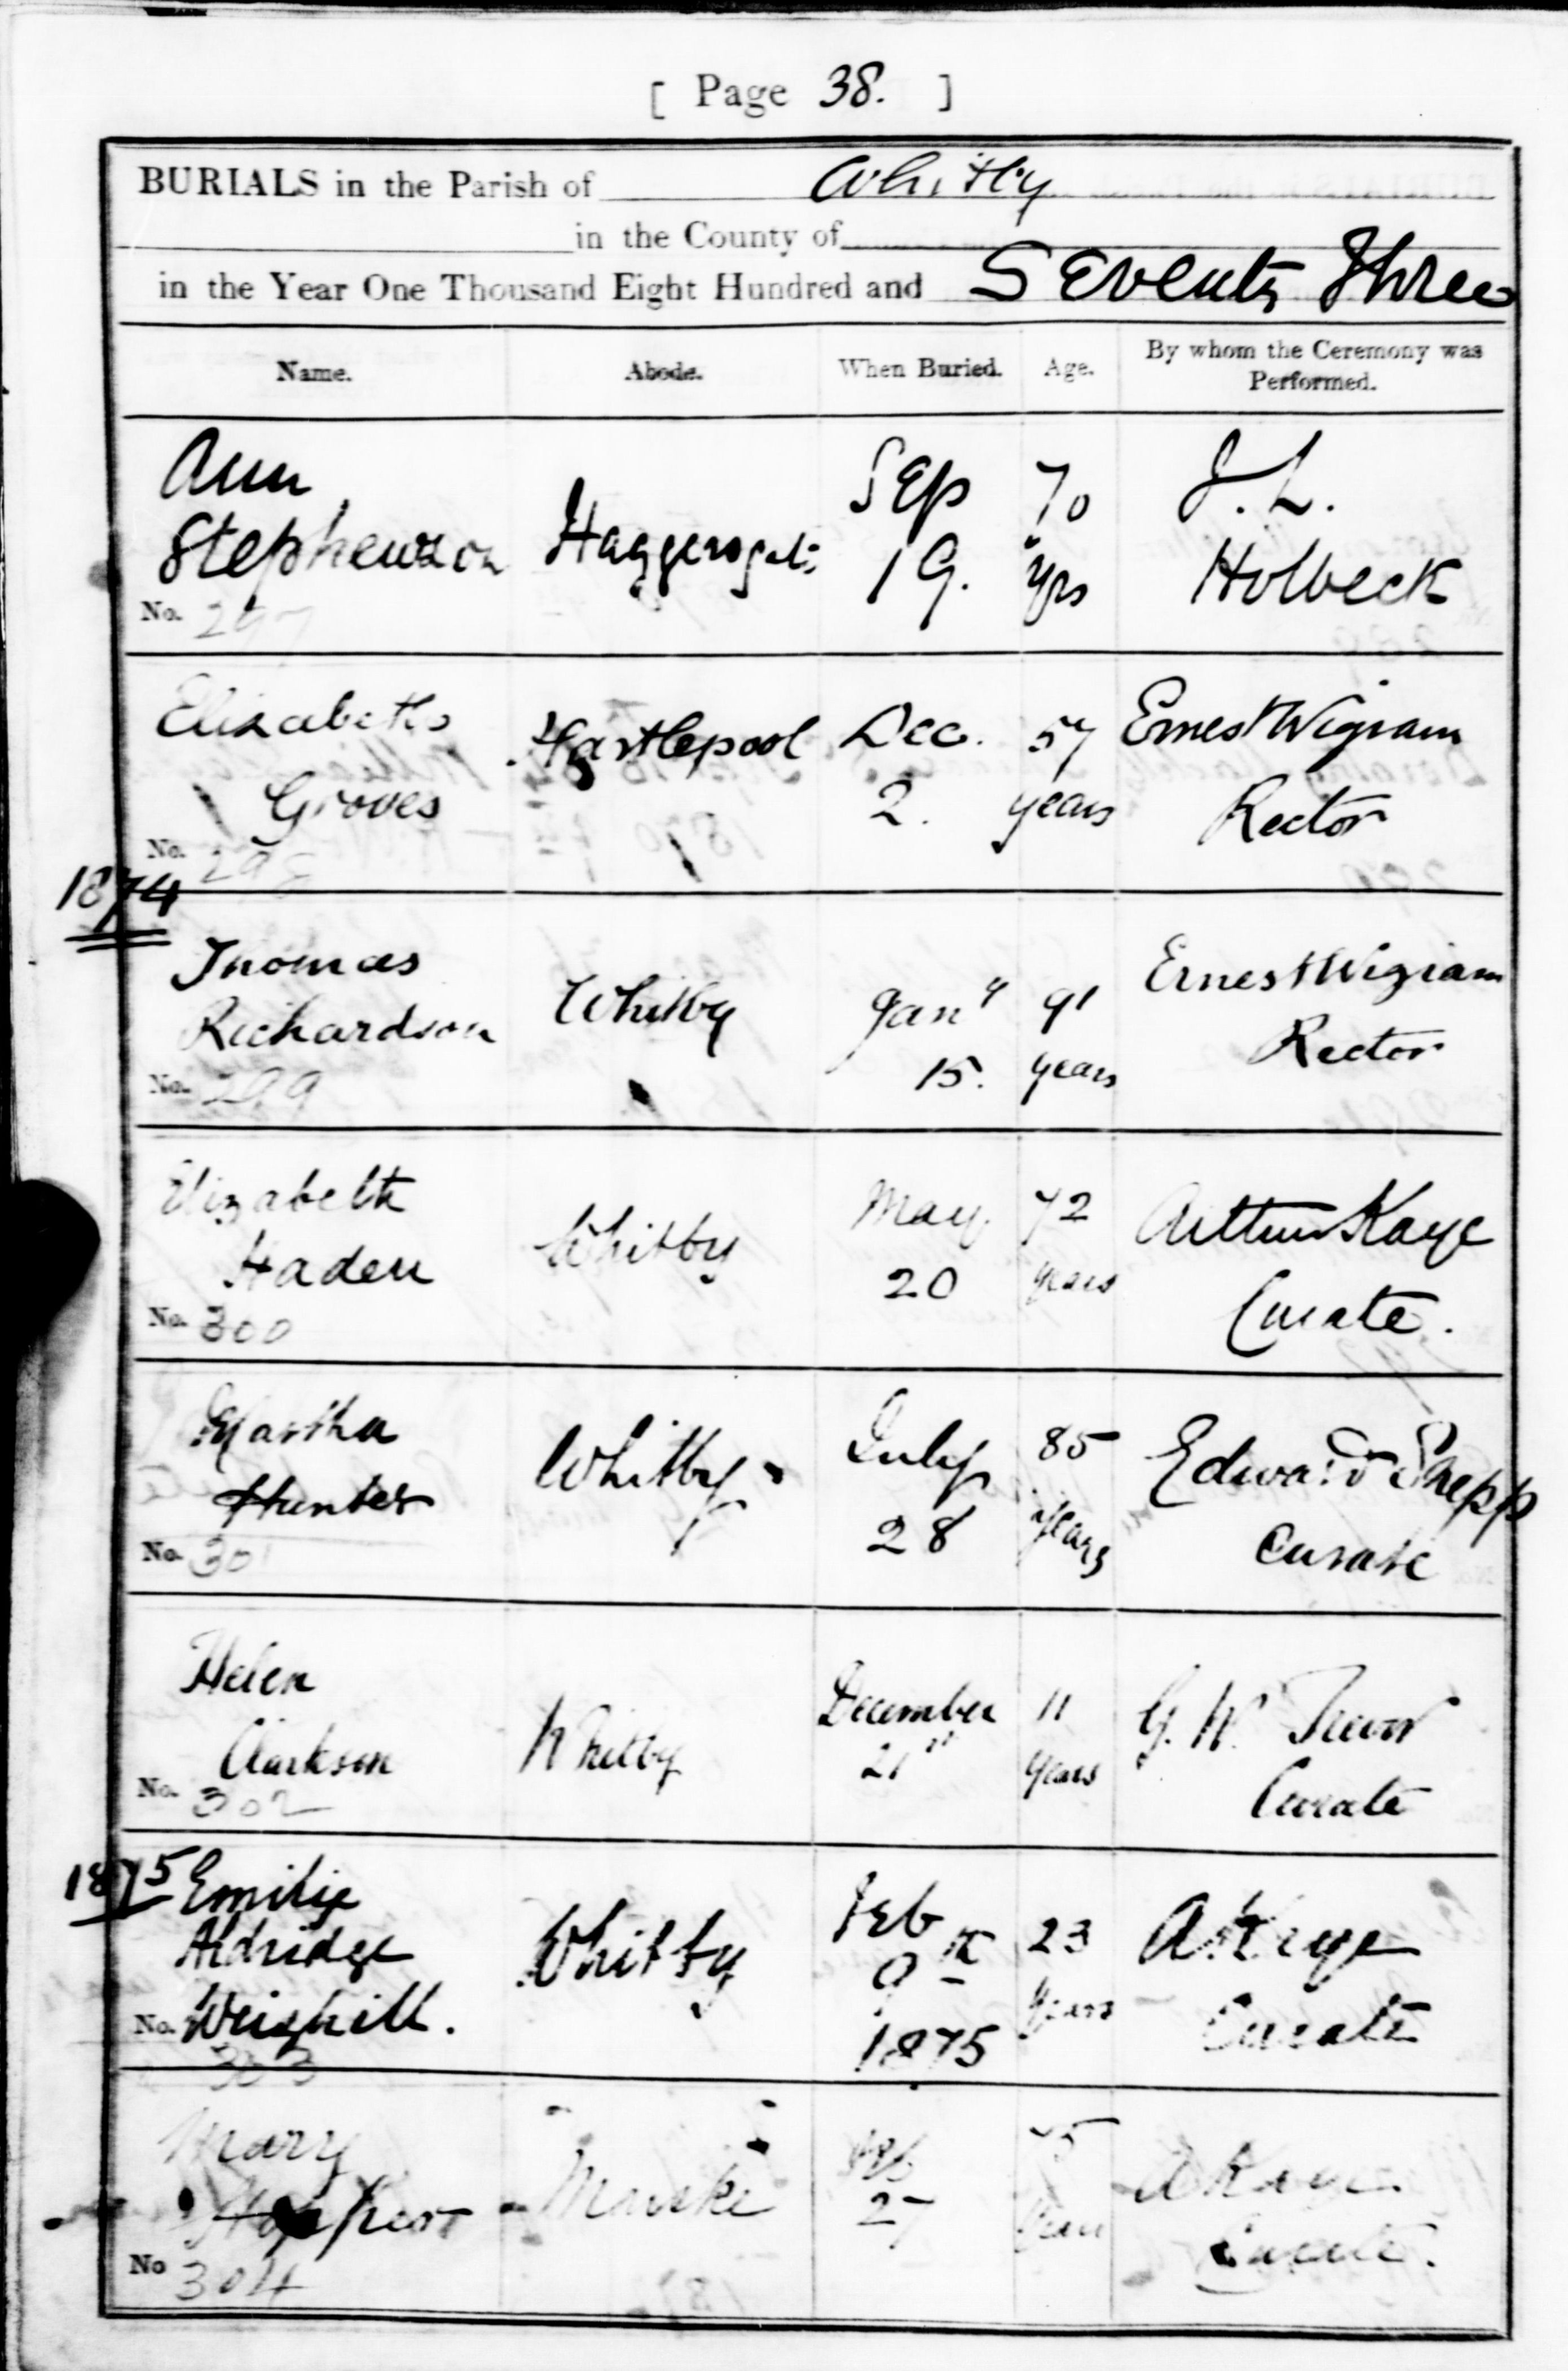 [ Page 38. ]
BURIALS in the Parish of Whitby
in the County of
in the Year One Thousand Eight Hundred and Seventy Three
Name. Abode. When Buried. Age. By whom the Ceremony was Performed.
Ann Stephenson Haggersgate Sep 19. 70 yrs J. L. Holbeck
No. 297
Elizabeth Groves Hartlepool Dec. 2. 57 years Ernest Wigram Rector
No. 298
1874
Thomas Richardson Whitby Jany 15. 91 years Ernest Wigram Rector
No. 299
Elizabeth Haden Whitby May 20 72 years Arthur Kaye Curate.
No. 300
Martha Hunter Whitby July 28 85 years Edward Shepp Curate
No. 301
Helen Clarkson Whitby December 21st 11 years G. W. Trevor Curate
No. 302
1875
Emilie Aldridge Weighill. Whitby Feb 9th 1875 23 years A Kaye Curate
No. 303
Mary Marske Feb 27 years A Kaye Curate.
No 304